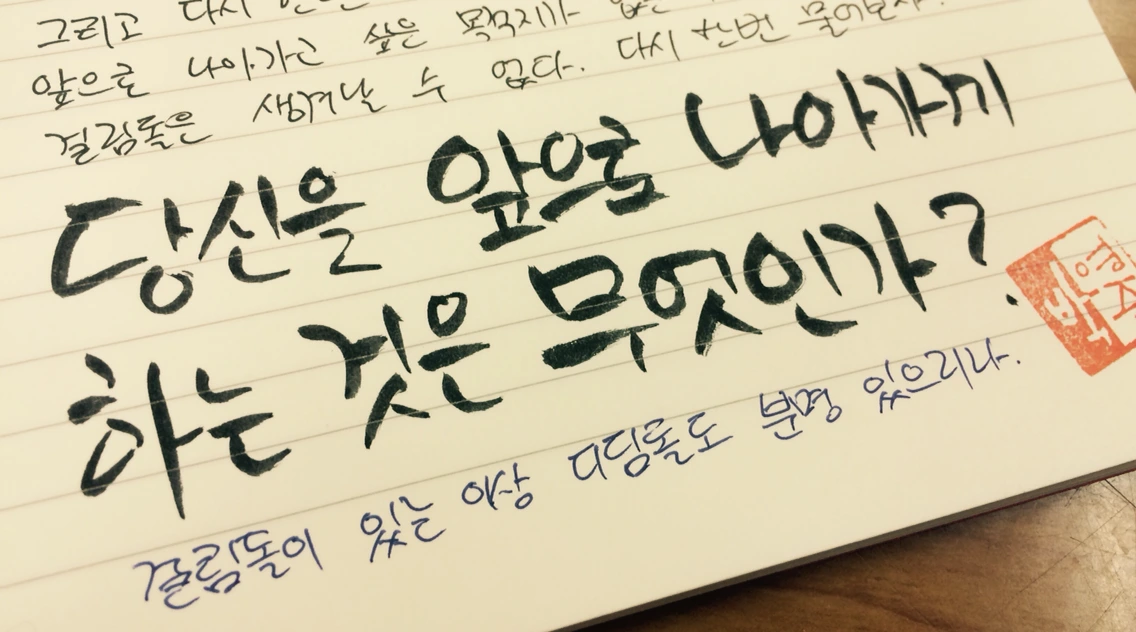 그리고 다시
앞으로 나아가고 싶은 목적지가
걸림돌은 생겨날 수 없다. 다시 한번 물어보자.
당신을 앞으로 나아가게
하는 것은 무엇인가?
걸림돌이 있는 이상 디딤돌도 분명 있으리라.